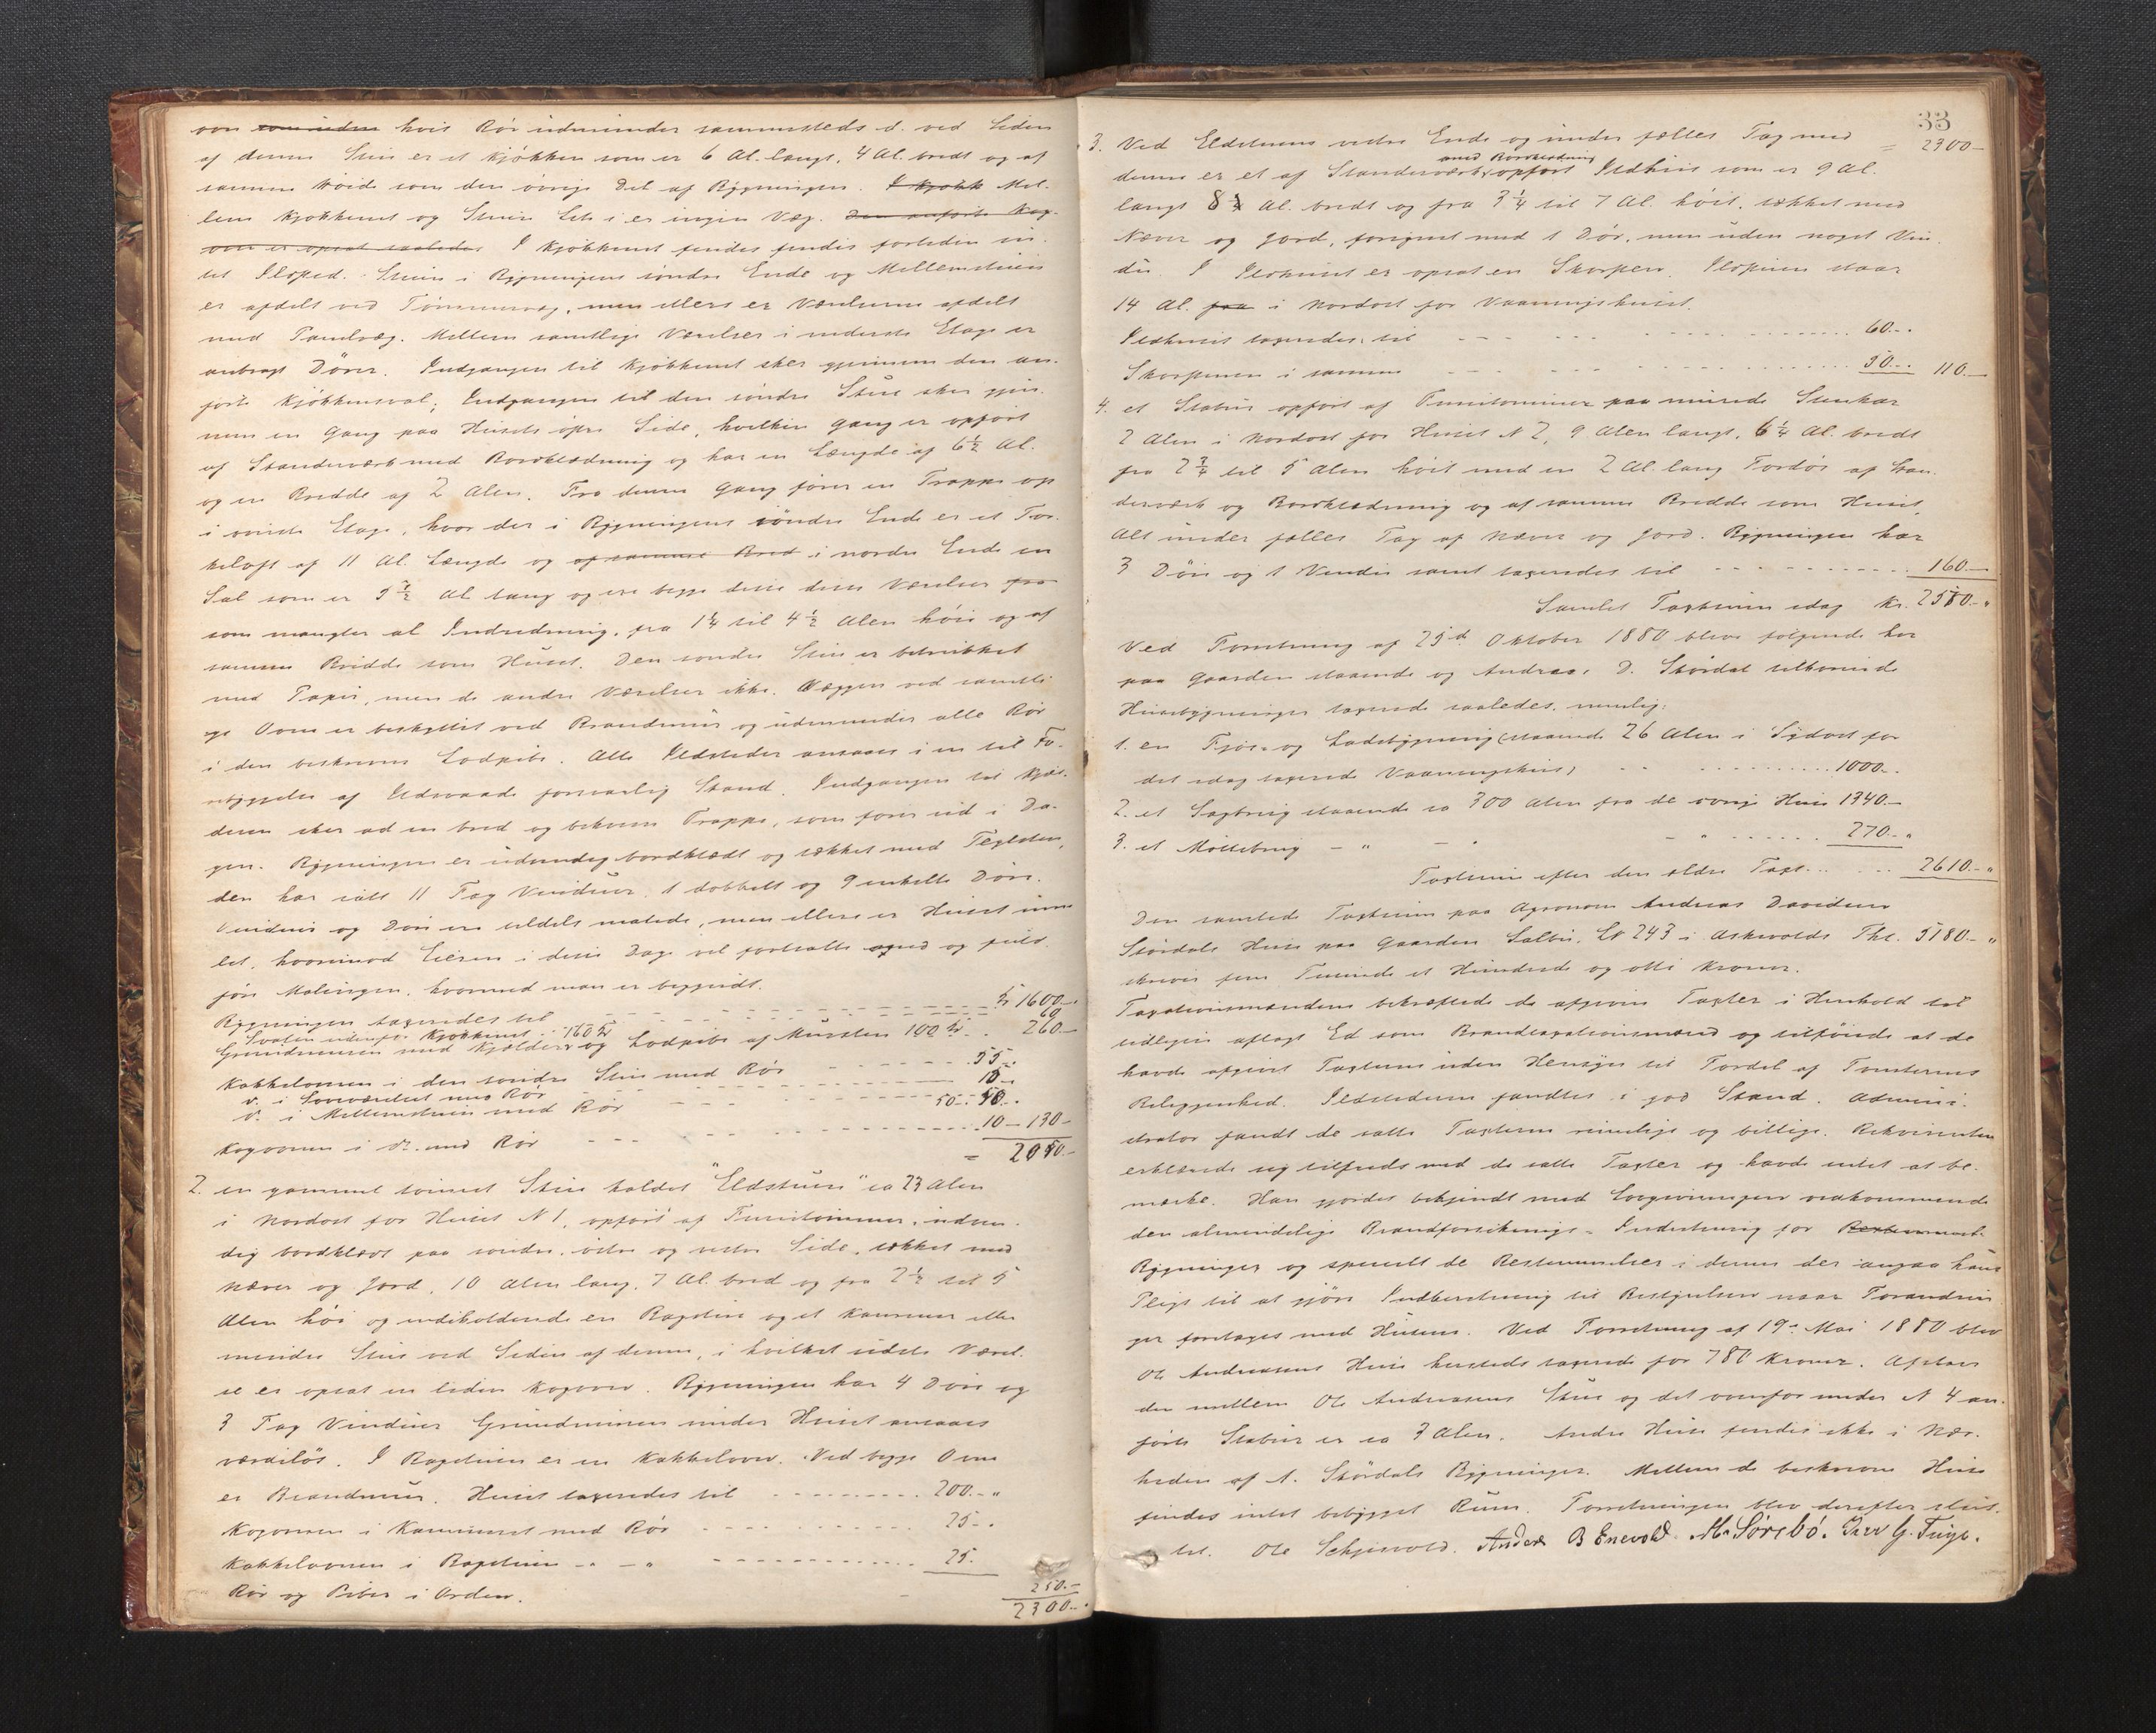 ovn som uden hvis Rör udmunder sammesteds d. ved Siden
af denne Stue er et Kjökken som er 6 Al. langt, 4 Al. bredt og af
samme Höide som den övrige Del af Bygningen. I Kjökk Mel-
lem Kjökkenet og Stuen Sets i er ingen Væg. Den anförte Kog-
ovn er opsat saaledes I Kjökkenet findes findes forleden in-
tet Ildsted. Stuen i Bygningens söndre Ende og Mellemstuen
er afdelt ved Tömmervæg, men ellers er Værelserne afdelt
med Panelvæg. Mellem samtlige Værelser i nederste Etage er
anbragt Dörer. Indgangen til Kjökkenet sker gjennem den an-
förte Kjökkensval; Indgangen til den söndre Stue sker gjen-
nem en Gang paa Husets öpre Side, hvilken Gang er opfört
af Standerværk med Bordklædning og har en Længde af 6½ Al.
og en Bredde af 2 Alen. Fra denne Gang förer en Trappe op
i överste Etage, hvor der i Bygningens söndre Ende er et Tör-
keloft af 11 Al. Længde og af samme Bred i nordre Ende en
Sal som er 5½ Al. lang og ere begge disse desse Værelser fra
som mangler al Indredning, fra 1¼ til 4½ Alen höie og af
samme Bredde som Huset. Den söndre Stue er betrukket
med Papir, men de andre Værelser ikke. Væggen ved samtli-
ge Ovne er beskyttet ved Brandmur og udmunder alle Rör
i den beskrevne Lodpibe. Alle Ildsteder ansaaes i en til Fo-
rebyggelse af Ildsvaade forsvarlig Stand. Indgangen til Kjæl-
deren sker ad en bred og bekvem Trappe, som förer ud i Da-
gen. Bygningen er udvendig bordklædt og tækket med Teglsten,
den har ialt 11 Fag Vinduer, 1 dobbelt og 9 enkelte Döre.
Vinduer og Döre ere tildels malede, men ellers er Huset uma-
let, hvorimod Eieren i disse Dage vil fortsætte med og fuld-
före Malingen, hvormed man er begyndt.
Bygningen taxeredes til Kr 1600.-
Svalen udenfor Kjökkenet 60
Grundmuren med Kjælder 160 Kr og Lodpibe af Mursten 100 Kr. 260.-
Kakkelovnen i den söndre Stue med Rör 55.-
d. i Soveværelset med Rör 15.-
d. i Mellemstuen med Rör 50.- 50.-
Kogovnen i do. med Rör 10 - 130.-
= 2050.-
2. en gammel tömret Stue kaldet "Eldstuen" ca 23 Alen
i Nordost for Huset N 1, opfört af Furutömmer, udven-
dig bordklædt paa söndre, östre og vestre Side, tækket med
Næver og Jord, 10 Alen lang, 7 Al. bred og fra 2½ til 5
Alen höi og indeholdende en Bagstue og et Kammer eller
mindre Stue ved Siden af denne, i hvilket sidste Værel-
se er opsat en liden Kogovn. Bygningen har 4 Döre og
3 Fag Vinduer Grundmuren under Huset ansaaes
værdilös. I Bagstuen er en Kakkelovn. Ved begge Ovne
er Brandmur. Huset taxeredes til 200.- "
Kogovnen i Kammeret med Rör 25.-
Kakkelovnen i Bagstuen - " - " 25.
Rör og Piber i Orden. 250.-
2300.-
33
3. Ved Eldstuens vestre Ende og under fælles Tag med = 2300-
med Bordklædning
denne er et af Standerværk opfört Ildhus som er 9 Al.
langt 8¼ Al. bredt og fra 3¼ til 7 Al. höit, tækket med
Næver og Jord, forsynet med 1 Dör, men uden noget Vin-
du. I Ildhuset er opsat en Skorsten. Ildhuset staar
14 Al. fra i Nordost for Vaaningshuset.
Ildhuset taxeredes til 60.-
Skorstenen i samme 50.- 110.-
4. et Stabur opfört af Furutömmer paa murede Stenkar
2 Alen i Nordost for Huset N 2, 9 Alen langt, 6¼ Al. bredt
fra 2¾ til 5 Alen höit med en 2 Al. lang Fordör af Stan-
derværk og Bordklædning og af samme Bredde som Huset,
Alt under fælles Tag af Næver og Jord. Bygningen har
3 Döre og 1 Vindu samt taxeredes til 160.-
Samlet Taxtsum idag Kr. 2570.- "
Ved Forretning af 25d Oktober 1880 bleve fölgende her
paa Gaarden staaende og Andreas D. Stördal tilhörende
Husebygninger taxerede saaledes, nemlig:
1. en Fjös- og Ladebygning (staaende 26 Alen i Sydost for
det idag taxerede Vaaningshus) 1000.-
2. et Sagbrug staaende ca 300 Alen fra de övrige Huse 1340.-
3. et Möllebrug - " - " - " 270.- "
Taxtsum efter den ældre Taxt 2610.- "
Den samlede Taxtsum paa Agronom Andreas Davidsen
Stördals Huse paa Gaarden Salbu, Lb 243 i Askvolds Thl. 5180.- "
skriver fem Tusinde et Hundrede og otti Kroner.
Taxationsmændene bekræftede de afgivne Taxter i Henhold til
tidligere aflagt Ed som Brandtaxationsmænd og tilföiede at de
havde afgivet Taxterne uden Hensyn til Fordel af Tomternes
Beliggenhed. Ildstederne fandtes i god Stand. Admini-
strator fandt de satte Taxterne rimelige og billige. Rekvirenten
erklærede sig tilfreds med de satte Taxter og havde intet at be-
mærke. Han gjordes bekjendt med Lovgivningen vedkommende
den almindelige Brandforsikrings-Indretning for Bestemmel-
Bygninger og specielt de Bestemmelser i denne der angaa hans
Pligt til at gjöre Indberetning til Bestyrelsen naar Forandrin-
ger foretages med Husene. Ved Forretning af 19de Mai 1880 blev
Ole Andreasens Huse hersteds taxerede for 780 Kroner. Afstan-
den mellem Ole Andreasens Stue og det ovenfor under N 4 an-
förte Stabur er ca 3 Alen. Andre Huse findes ikke i Nær-
heden af A. Stördals Bygninger. Mellem de beskrevne Huse
findes intet bebygget Rum. Forretningen blev derefter slut-
tet. Ole Schjervold. Anders B Enevold. M. Sörebö. Iver G.